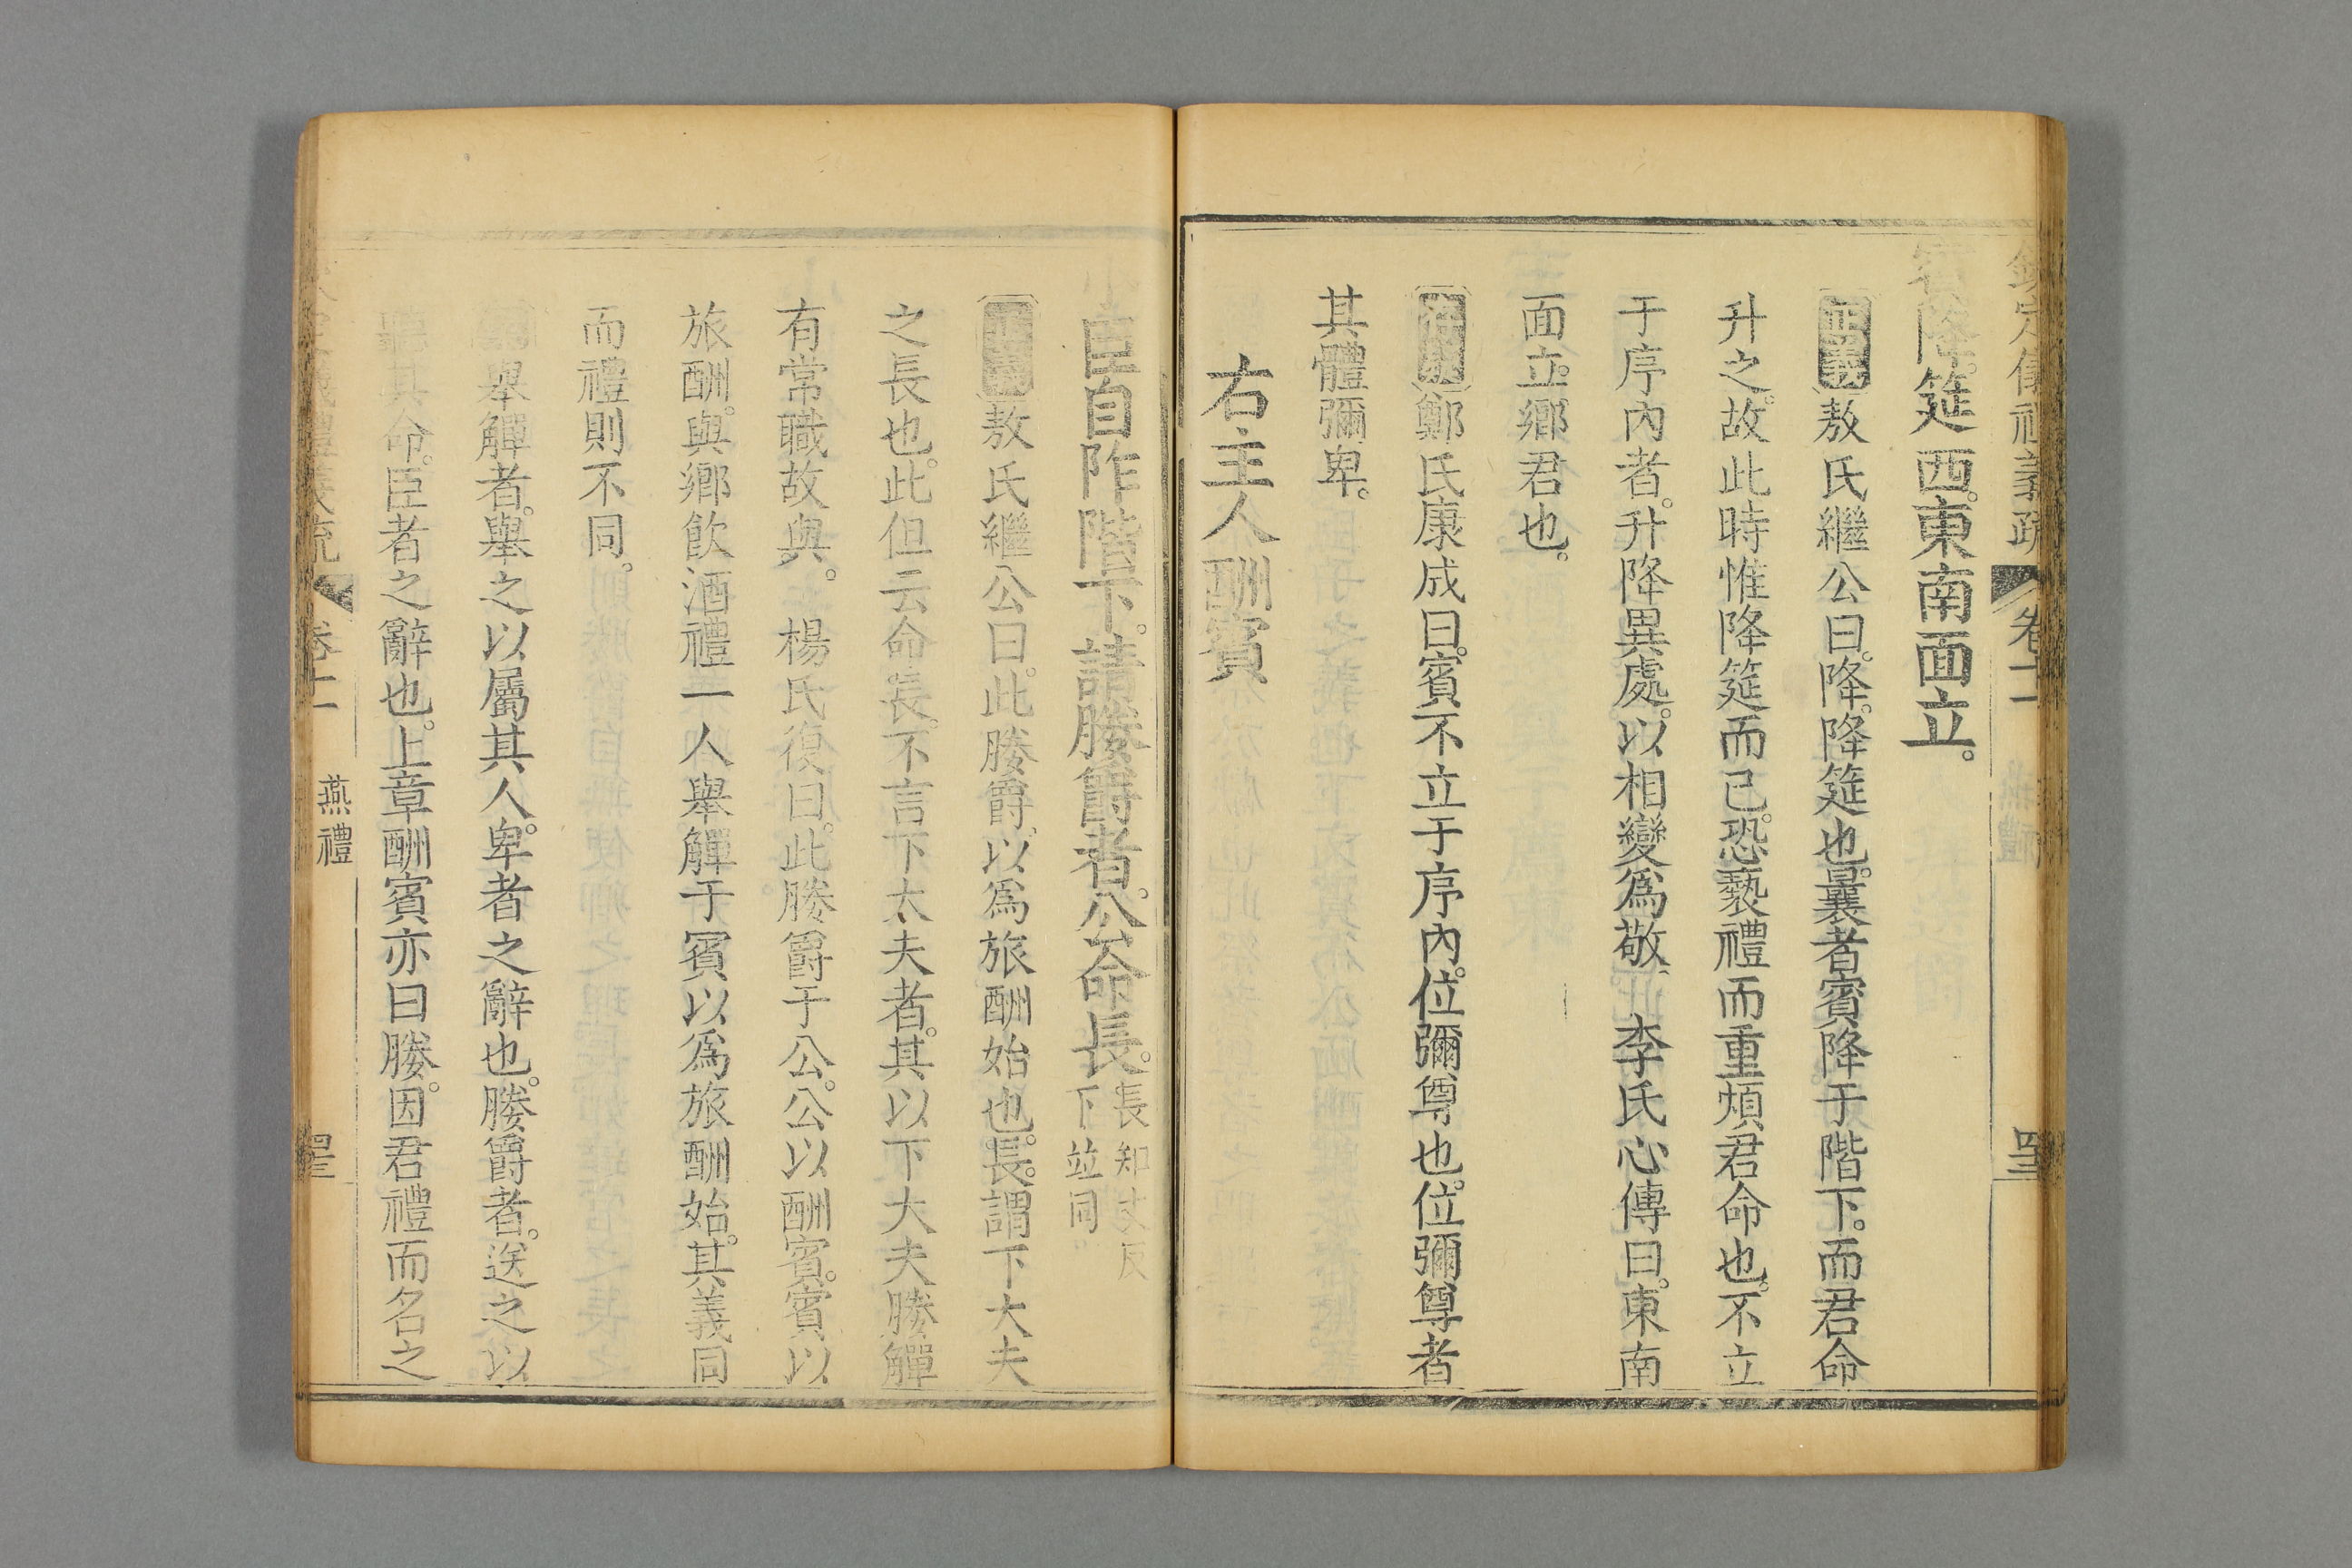 欽定儀禮義疏 卷十二
賓降筵西東南面立。
正義敖氏繼公曰。降。降筵也。曩者賓降于階下。而君命
升之。故此時惟降筵而已。恐褻禮而重煩君命也。不立
于序內者。升降異處。以相變爲敬 李氏心傳曰。東南
面立。鄉君也。
存疑鄭氏康成曰。賓不立于序內。位彌尊也。位彌尊者
其體彌卑。
右主人酬賓
小臣自阼階下。請媵爵者。公命長。長知丈反
下並同
正義敖氏繼公曰。此媵爵。以爲旅酬始也。長。謂下大夫
之長也。此但云命長。不言下大夫者。其以下大夫媵觶
有常職故與。 楊氏復曰。此媵爵于公。公以酬賓。賓以
旅酬。與鄉飲酒禮一人舉觶于賓以爲旅酬始。其義同
而禮則不同。
舉觶者。舉之以屬其人。卑者之辭也。媵爵者。送之以
其命。臣者之辭也。上章酬賓亦曰媵。因君禮而名之
卷十二
燕禮